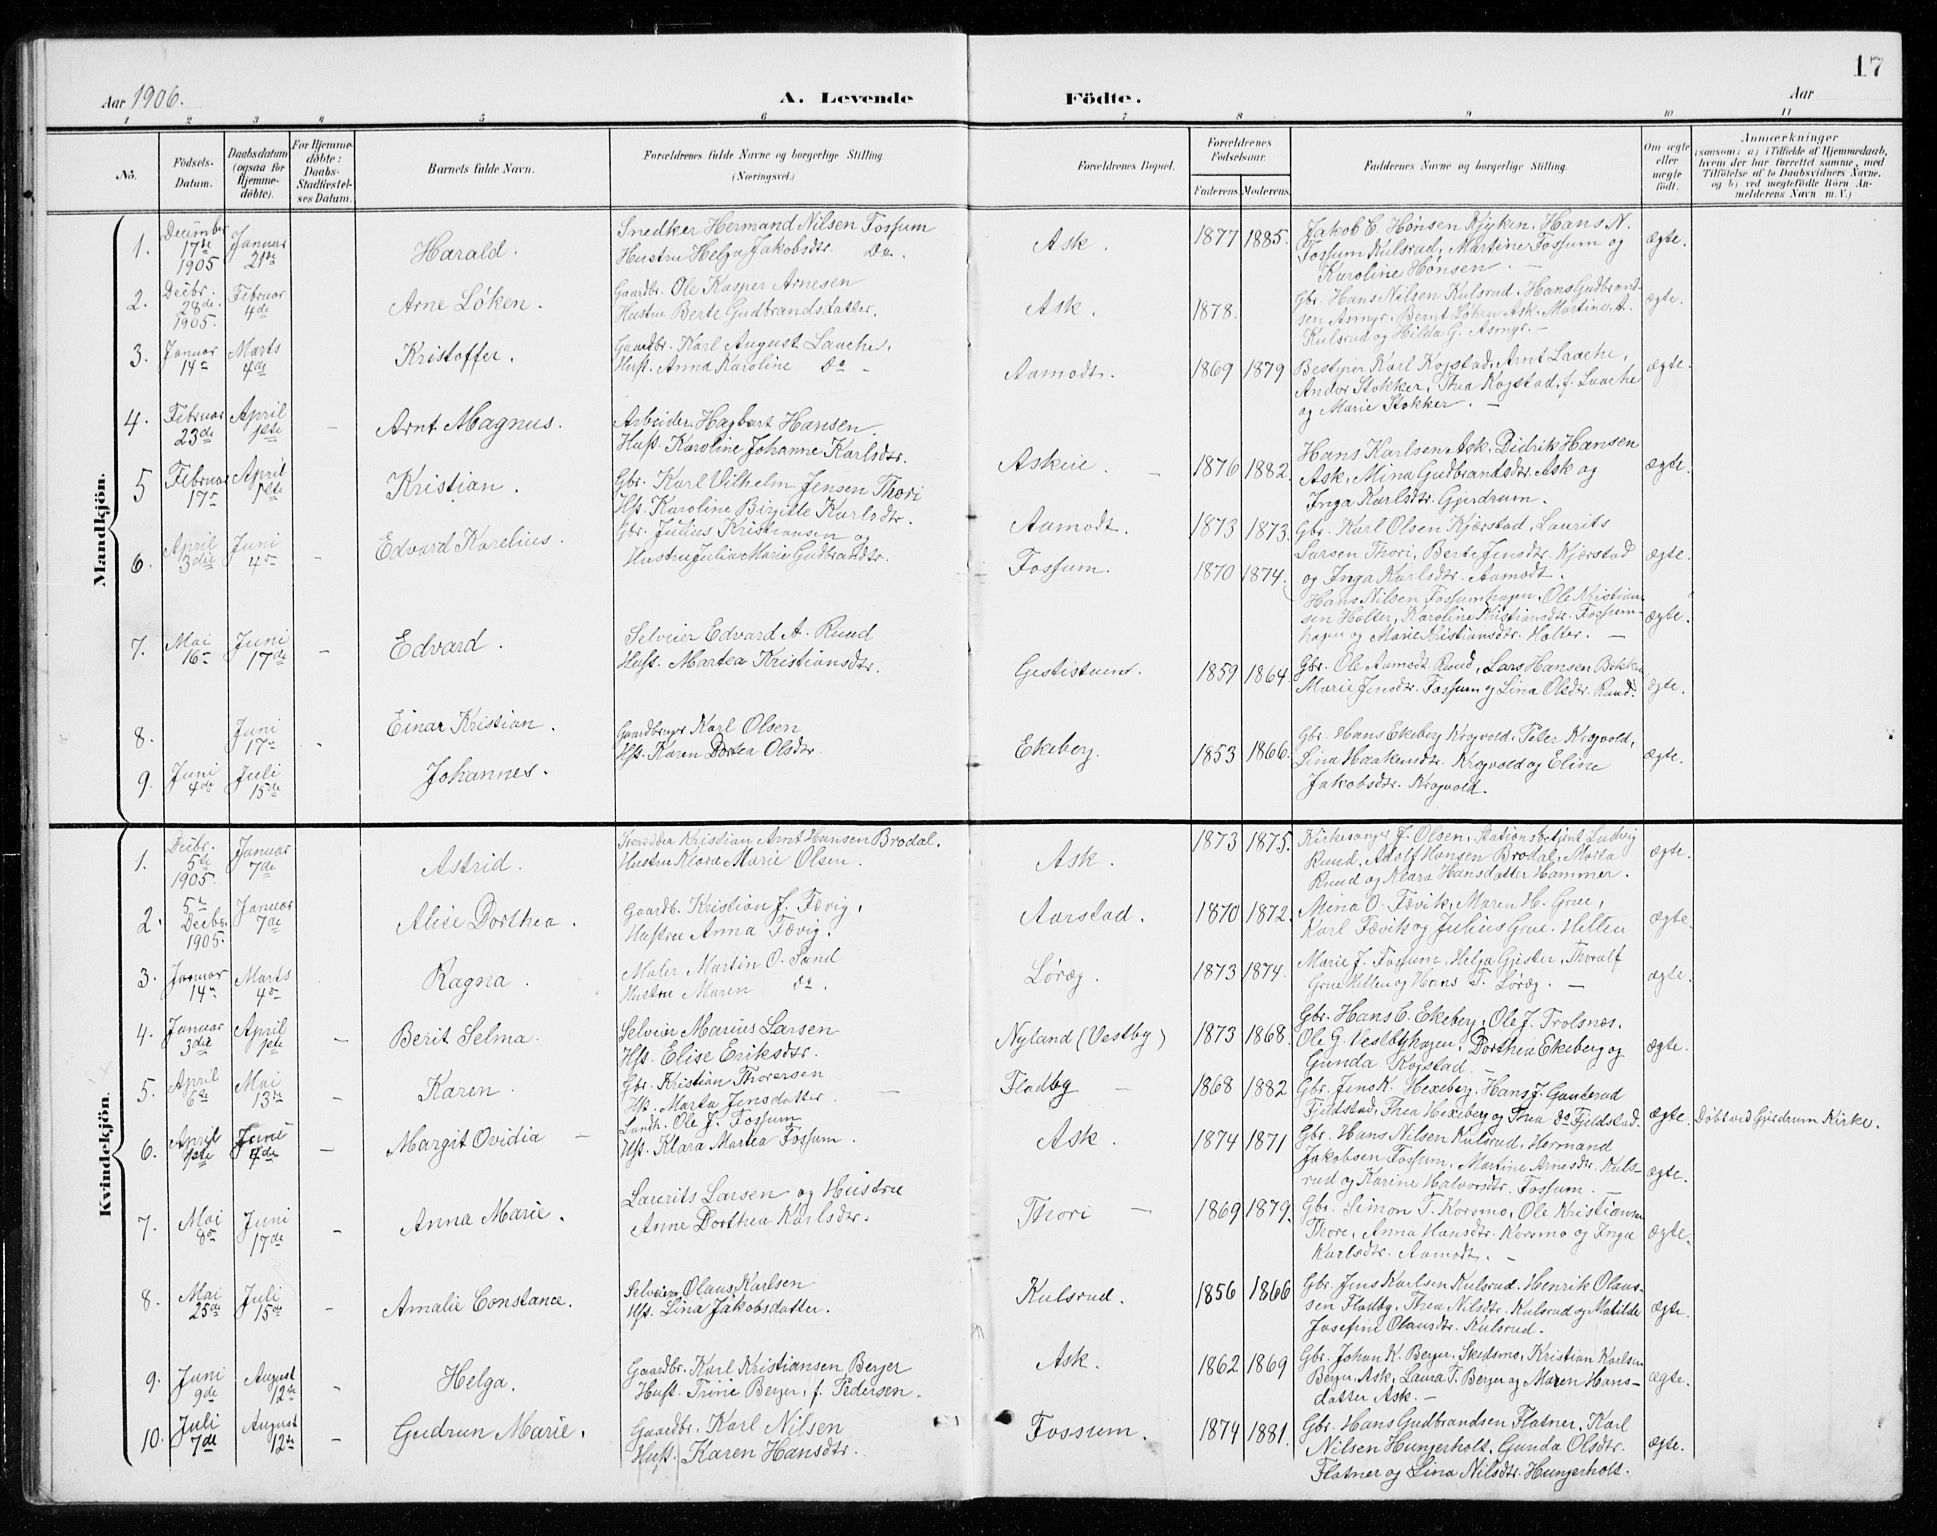 17
Aar 1906.
A. Levende Födte.
Aar
1 2 3 4 5 6 7 8 9 10 11
No.
Födsels-Datum.
Daabsdatum (ogsaa for Hjemmedöbte).
For Hjemmedöbte: Daabs-Stadfæstelses Datum.
Barnets fulde Navn.
Forældrenes fulde Navne og borgerlige Stilling (Næringsvei.)
Forældrenes Bopæl.
Forældrenes Födselsaar.
Faderens. Moderens.
Faddernes Navne og borgerlige Stilling.
Om ægte eller uægte födt.
Anmærkninger
(saasom: a) i Tilfælde af Hjemmedaab, hvem der har forrettet samme, med Tilföielse af to Daabsvidners Navne, og b) ved uægtefödte Börn Anmelderens Navn m.V.)
Mandkjön.
1. December 17de 1905 Januar 21de Harald. Snedker Hermand Nilsen Fossum
Hustru Helga Jakobsdtr. Do. Ask. 1877 1885. Jakob C. Hønsen Kjyken, Hans N.
Fossum Kulsrud, Martine Fossum og
Karoline Hønsen. — ægte.
2. Decbr. 28de 1905. Februar 4de Arne Löken. Gaardbr. Ole Kasper Arnesen
Hustru Berte Gudbrandsdatter. Ask. 1878. Gbr. Hans Nilsen Kulsrud, Hans Gudbrand-
sen Asmyr, Bernt Löken Ask, Martine A.
Kulsrud og Hilda G. Asmyr. — ægte.
3. Januar 14de Marts 4de Kristoffer. Gaardbr. Karl August Laache,
Hust. Anna Karoline Do - Aamodt. 1869 1879 Bestyrer Karl Kogstad, Arnt Laache,
Ander Stokker, Thea Kogstad, f. Laache
og Marie Stokker. — ægte.
4. Februar 23de April 1ste — Arnt Magnus. Arbeider Hagbart Hansen.
Hust. Karoline Johanne Karlsdtr. Askeie. — 1876 1882. Hans Karlsen Ask, Didrik Hansen
Ask, Mina Gudbrandsdtr. Ask og
Inga Karlsdtr. Gjerdrum. ægte.
5 Februar 17de April 1ste Kristian. Gbr. Karl Vilhelm Jensen Thori
Hst. Karoline Birgitte Karlsdtr. Aamodt. 1873 1873. Gbr. Karl Olsen Kjærstad, Laurits
Larsen Thori, Berte Jensdtr. Kjærstad
og Inga Karlsdtr. Aamodt. ægte.
6. April 3die Juni 4de - Edvard Karelius. Gbr. Julius Kristiansen og
Hustru Julia Marie Gudbrandtr. Fossum. 1870 1874. Hans Nilsen Fossumhagen, Ole Kristian-
sen Holter, Karoline Kristiansdtr. Fossum-
hagen og Marie Kristiansdtr. Holter. — ægte.
7. Mai 16de Juni 17de - Edvard. Selveier Edvard A. Ruud
Hust. Martea Kristiansdtr. 1859 1864. Gbr. Ole Aamodt Ruud, Lars Hansen Bekken
Marie Jensdtr. Fossum og Lina Olsdtr. Ruud. ægte.
8. Juni 17de . Einar Kristian. Gaardbruger Karl Olsen
Hst. Karen Dortea Olsdtr. Ekeberg. 1853 1866. Gbr. Hans Ekeberg Krogvold, Peter Krogvold,
Lina Haakensdtr. Krogvold og Eline
Jakobsdtr. Krogvold. ægte.
9. Juni 4de Juli 15de Johannes.
Kvindekjön.
1. Decbr. 5te 1905. Januar 7de Astrid. Skrædder Kristian Arnt Hansen Brodal.
Hustru Klara Marie Olsen. Ask. 1873 1875. Kirkesanger J. Olsen, Stationsbetjent Ludvig
Ruud, Adolf Hansen Brodal, Marta
Ruud og Klara Hansdatter Hammer. ægte.
2. 5te Decbr. 1905. Januar 7de Alice Dorthea. Gaardb. Kristian J. Fævig,
Hustru Anna Fævig. Aarstad. 1870 1872. Mina O. Fævik, Maren H. Grue,
Karl Fævik og Julius Grue, Hellen ægte.
3. Januar 14de Marts 4de Ragna. Maler Martin O. Sand
Hustru Maren do. Löræg. 1873 1874. Marie J. Fossum, Helga Gjester, Thoralf
Grue Hellen og Hans T. Löræg. — ægte.
4. Januar 3die April 1ste — Berit Selma. Selveier Marius Larsen
Hst. Elise Eriksdtr. Nyland (Vestby) 1873 1868. Gbr. Hans C. Ekeberg, Ole J. Trolsnæs,
Ole G. Vestbyhagen, Dorthea Ekeberg og
Gunda Kogstad. — ægte.
5. April 6te Mai 13de — Karen. Gbr. Kristian Thoresen
Hst. Marta Jensdatter. — Fladby — 1868 1882 Gbr. Jens K. Hexeberg, Hans J. Gauterud
Fjeldstad, Thea Hexeberg og Thea do Fjeldstad. ægte. Döbt ved Gjerdrum Kirke.
6. April 1ste Juni 4de — Margit Ovidia — Landh. Ole J. Fossum
Hst. Klara Martea Fossum. Ask. 1874 1871 Gbr. Hans Nilsen Kulsrud, Hermand
Jakobsen Fossum, Martine Arnesdtr. Kuls-
rud og Karine Halvorsdtr. Fossum. — ægte.
7. Mai 8de Juni 17de - Anna Marie. Laurits Larsen og Hustru
Anne Dorthea Karlsdtr. Thori — 1869 1879. Gbr. Simon T. Korsmo, Ole Kristiansen
Thore, Anna Hansdtr. Korsmo og Inga
Karlsdtr. Aamodt. — ægte.
8. Mai 25de Juli 15de - Amalie Constance. Selveier Olaus Karlsen
Hst. Lina Jakobsdatter. Kulsrud. 1856 1866 Gbr. Jens Karlsen Kulsrud, Henrik Olaus-
sen Fladby, Thea Nilsdtr. Kulsrud og Matilde
Josefine Olausdtr. Kulsrud. ægte.
9. Juni 9de August 12te - Helga. Gaardbr. Karl Kristiansen Berger
Hust. Trine Berger, f. Pedersen. Ask. 1862 1869 Gbr. Johan K. Berger, Skedsmo, Kristian Karlsen
Berger, Ask, Laura T. Berger og Maren Hans-
datter Ask. — ægte.
10. Juli 7de August 12te — Gudrun Marie. Gaardbr. Karl Nilsen
Hust. Karen Hansdtr. Fossum. 1874 1881. Gbr. Hans Gudbrandsen Flatner, Karl
Nilsen Hungerholt, Gunda Olsdtr.
Flatner og Lina Nilsdtr. Hungerholt. ægte.